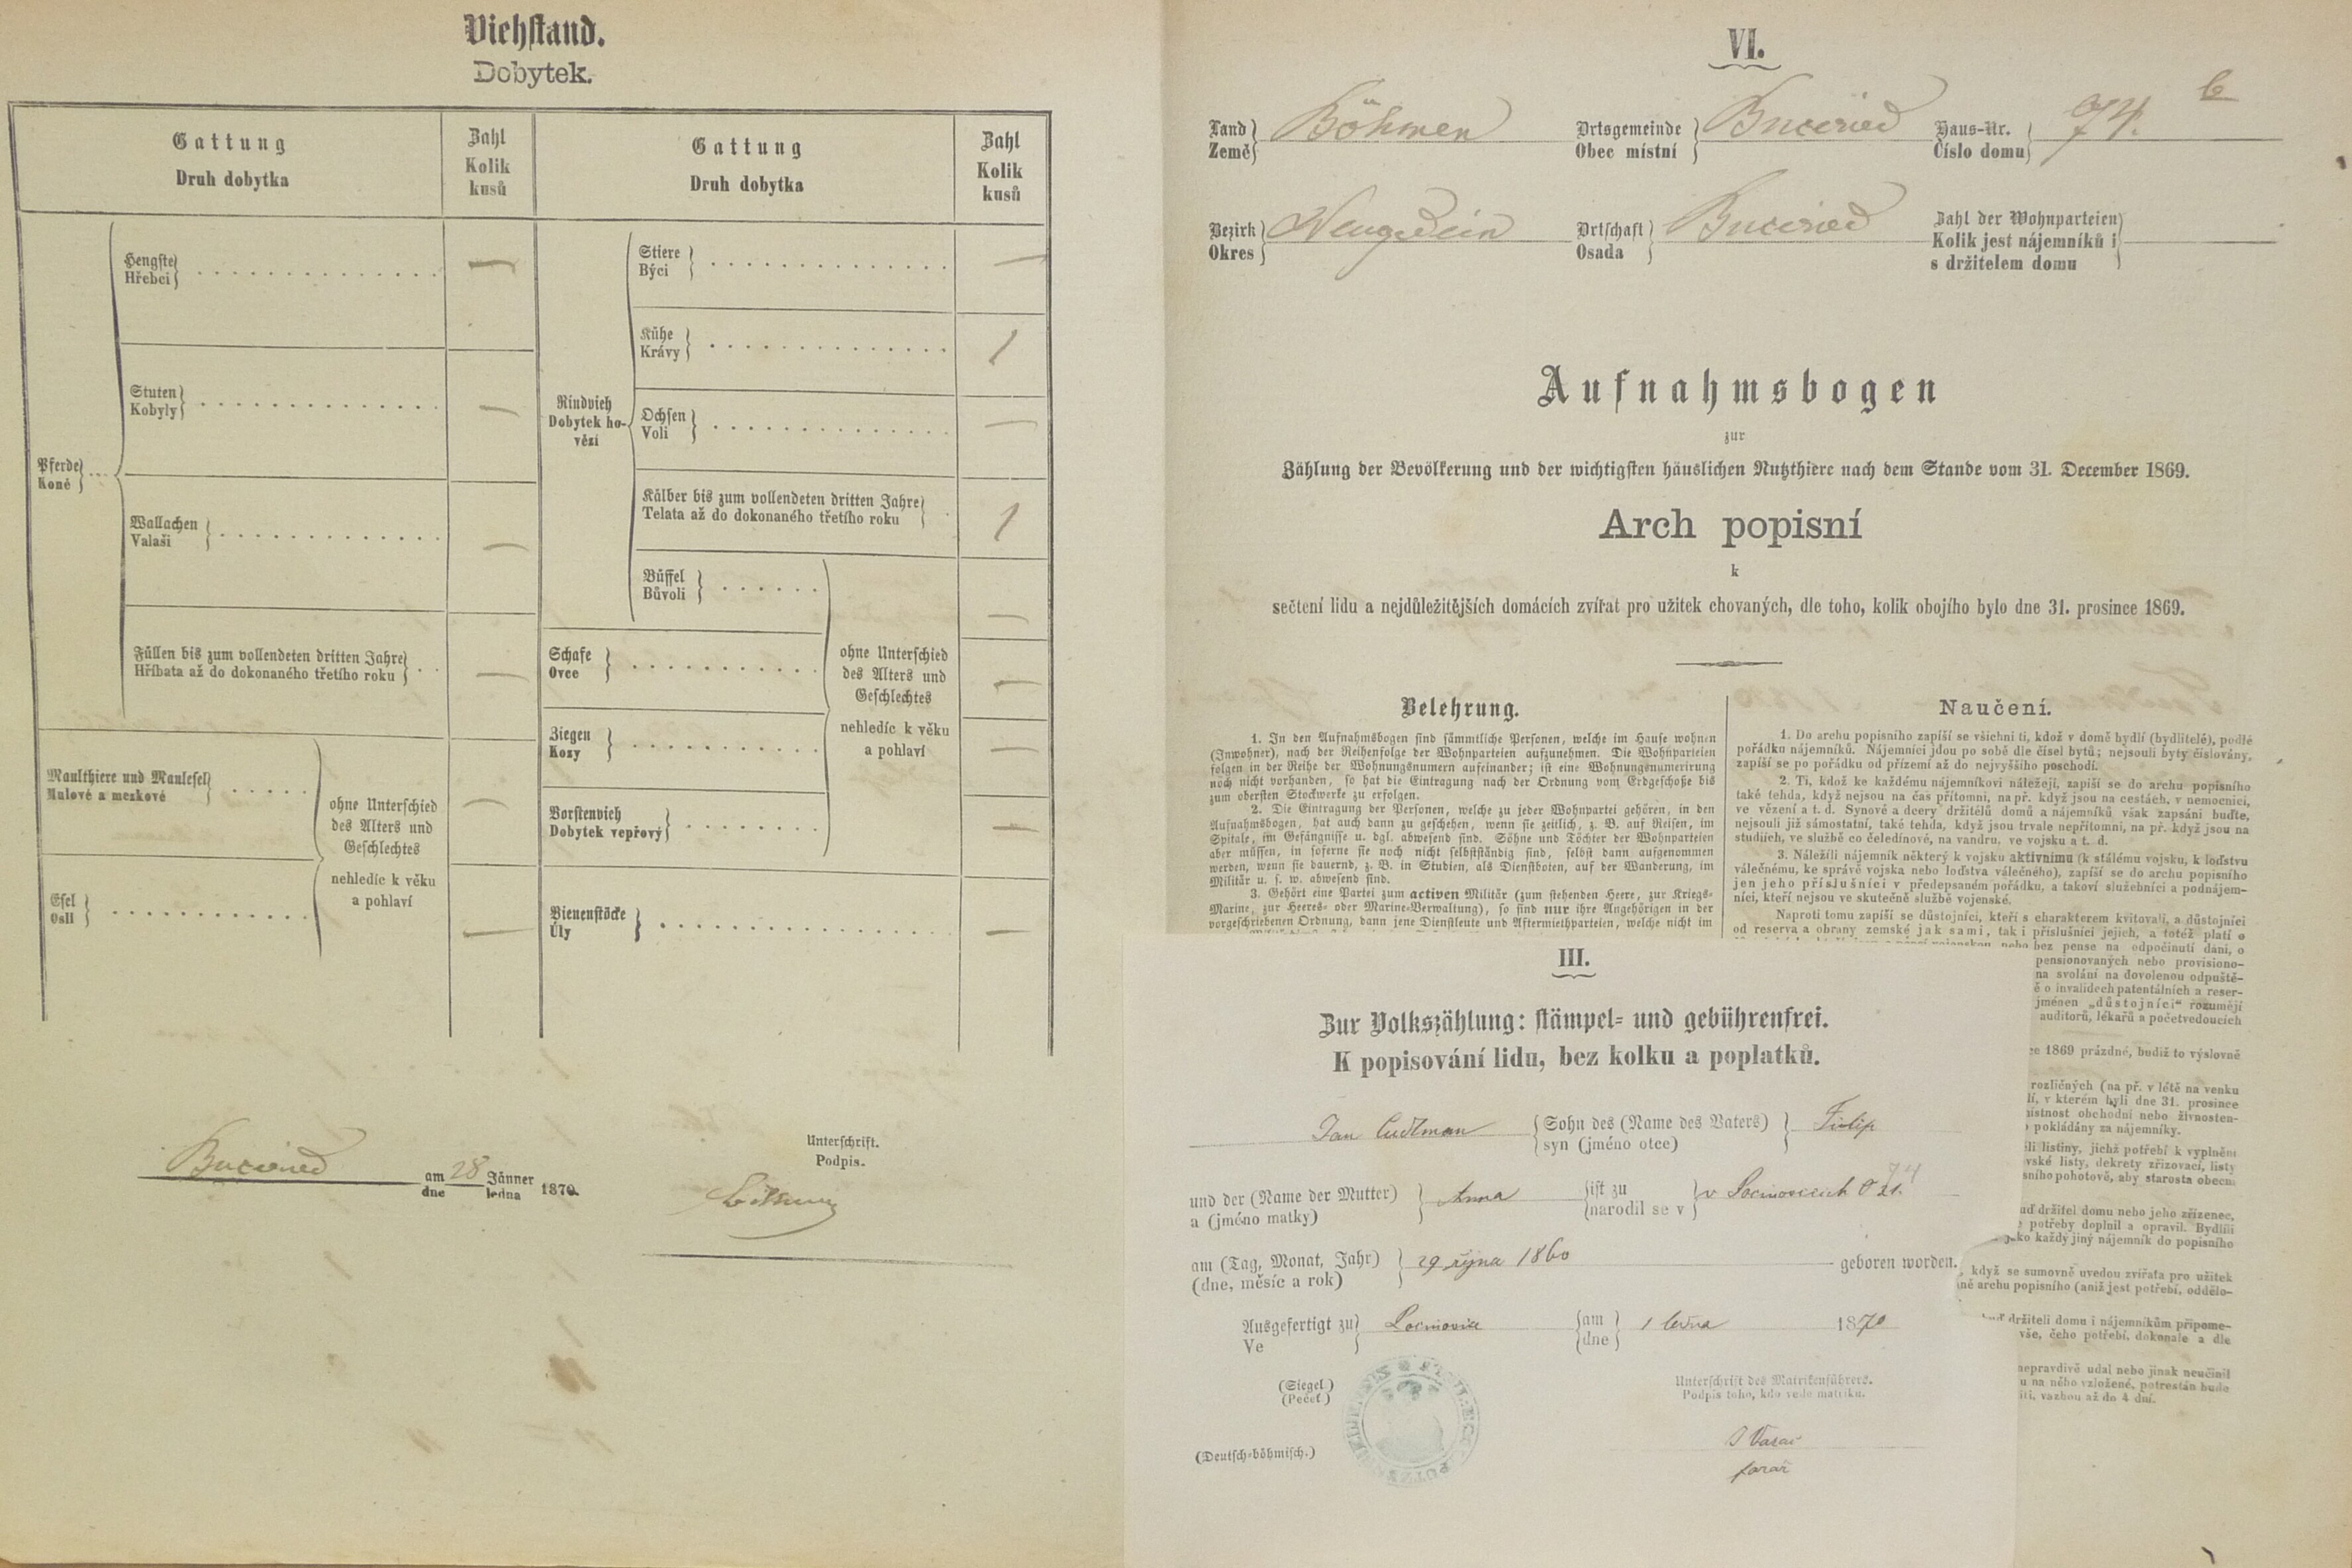 Viehstand.
Dobytek.
Gattung
Druh dobytka
Zahl
Kolik
kusů
Gattung
Druh dobytka
Zahl
Kolik
kusů
Pferde
Koně
Hengste
Hřebci
—
Stuten
Kobyly
—
Wallachen
Valaši
—
Füllen bis zum vollendeten dritten Jahre
Hříbata až do dokonaného třetího roku
—
Maulthiere und Maulesel
Mulové a mezkové
—
Esel
Osli
—
ohne Unterschied
des Alters und
Geschlechtes
nehledíc k věku
a pohlaví
Rindvieh
Dobytek ho-
vězí
Stiere
Býci
—
Kühe
Krávy
1
Ochsen
Voli
—
Kälber bis zum vollendeten dritten Jahre
Telata až do dokonaného třetího roku
1
Büffel
Bůvoli
—
Schafe
Ovce
—
Ziegen
Kozy
—
Borstenvieh
Dobytek vepřový
—
ohne Unterschied
des Alters und
Geschlechtes
nehledíc k věku
a pohlaví
Bienenstöcke
Úly
—
am 28 Jänner 1870.
dne ledna
Unterschrift.
Podpis.
VI.
Land Böhmen Ortsgemeinde Haus-Nr. 74. b
Země Obec místní Číslo domu
Bezirk Neugedein Ortschaft Zahl der Wohnparteien
Okres Osada Kolik jest nájemníků i
s držitelem domu
Aufnahmsbogen
zur
Zählung der Bevölkerung und der wichtigsten häuslichen Nutzthiere nach dem Stande vom 31. December 1869.
Arch popisní
k
sečtení lidu a nejdůležitějších domácích zvířat pro užitek chovaných, dle toho, kolik obojího bylo dne 31. prosince 1869.
Belehrung.
1. In den Aufnahmsbogen sind sämmtliche Personen, welche im Hause wohnen
(Inwohner), nach der Reihenfolge der Wohnparteien aufzunehmen. Die Wohnparteien
folgen in der Reihe der Wohnungsnumern aufeinander; ist eine Wohnungsnumerirung
noch nicht vorhanden, so hat die Eintragung nach der Ordnung vom Erdgeschoße bis
zum obersten Stockwerke zu erfolgen.
2. Die Eintragung der Personen, welche zu jeder Wohnpartei gehören, in den
Aufnahmsbogen, hat auch dann zu geschehen, wenn sie zeitlich, z. B. auf Reisen, im
Spitale, im Gefängnisse u. dgl. abwesend sind. Söhne und Töchter der Wohnparteien
aber müssen, in soferne sie noch nicht selbstständig sind, selbst dann aufgenommen
werden, wenn sie dauernd, z. B. in Studien, als Dienstboten, auf der Wanderung, im
Militär u. s. w. abwesend sind.
3. Gehört eine Partei zum activen Militär (zum stehenden Heere, zur Kriegs-
Marine, zur Heeres- oder Marine-Verwaltung), so sind nur ihre Angehörigen in der
vorgeschriebenen Ordnung, dann jene Dienstleute und Aftermiethparteien, welche nicht im
Naučení.
1. Do archu popisního zapíší se všichni ti, kdož v domě bydlí (bydlitelé), podlé
pořádku nájemníků. Nájemníci jdou po sobě dle čísel bytů; nejsouli byty číslovány,
zapíší se po pořádku od přízemí až do nejvyššího poschodí.
2. Ti, kdož ke každému nájemníkovi náležejí, zapíší se do archu popisního
také tehda, když nejsou na čas přítomni, na př. když jsou na cestách, v nemocnici,
ve vězení a t. d. Synové a dcery držitelů domu a nájemníků však zapsáni buďte,
nejsouli již sámostatní, také tehda, když jsou trvale nepřítomni, na př. když jsou na
studiích, ve službě co čeledínové, na vandru, ve vojsku a t. d.
3. Náležíli nájemník některý k vojsku aktivnímu (k stálému vojsku, k loďstvu
válečnému, ke správě vojska nebo loďstva válečného), zapíší se do archu popisního
jen jeho příslušníci v předepsaném pořádku, a takoví služebníci a podnájem-
níci, kteří nejsou ve skutečné službě vojenské.
Naproti tomu zapíší se důstojníci, kteří s charakterem kvitovali, a důstojníci
od reserva a obrany zemské jak sami, tak i příslušníci jejich, a totéž platí o
bez pense na odpočinutí dáni, o
pensionovaných nebo provisiono-
na svolání na dovolenou odpuště-
ě o invalidech patentálních a reser-
jménen „důstojníci“ rozumějí
auditorů, lékařů a početvedoucích
ce 1869 prázdné, budiž to výslovně
rozličných (na př. v létě na venku
lí, v kterém byli dne 31. prosince
místnost obchodní nebo živnosten-
pokládány za nájemníky.
li listiny, jichž potřebí k vyplnění
vské listy, dekrety zřizovací, listy
sního pohotově, aby starosta obecn
uď držitel domu nebo jeho zřízenec,
potřeby doplnil a opravil. Bydlílí
jako každý jiný nájemník do popisního
když se sumovně uvedou zvířata pro užitek
ně archu popisního (aniž jest potřebí, oddělo-
držiteli domu i nájemníkům připome-
vše, čeho potřebí, dokonale a dle
nepravdivě udal nebo jinak neučinil
u na něho vzložené, potrestán bude
iti, vazbou až do 4 dní.
III.
Zur Volkszählung: stämpel- und gebührenfrei.
K popisování lidu, bez kolku a poplatků.
Jan Cudlman Sohn des (Name des Vaters) Filip
syn (jméno otce)
und der (Name der Mutter) Anna ist zu v 74
a (jméno matky) narodil se v
am (Tag, Monat, Jahr) 29 října 1860 geboren worden.
(dne, měsíc a rok)
Ausgefertigt zu am 1 ledna 1870
Ve dne
(Siegel.)
(Pečeť.)
Unterschrift des Matrikenführers.
Podpis toho, kdo vede matriku.
(Deutsch-böhmisch.)
farář